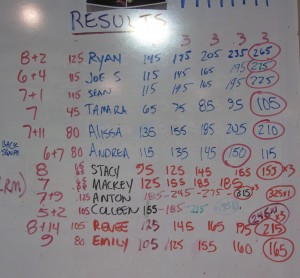 RESULTS
3 3 3 3
8+2 125 RYAN 145 175 205 235 265
6+4 115 JOE S 115 145 165 195 275
7+1 115 SEAN 115 195 225
7 45 TAMARA 65 75 85 95 105
7+11 80 ALISSA 135 155 185 205 210
BACK SQUAT 6+7 80 ANDREA 115 135 145 150 115
8 STACY 95 125 145 165 153 x3
7 MACKEY 125 155 185 x3
7+9 ANTON 185 - 245 - 275 - 315 x3 325x1
5+2 105 COLLEEN 155 - 185 - 225 x3
8+14 105 RENEE 125 145 165 195 215
9 80 EMILY 105 125 155 160 165